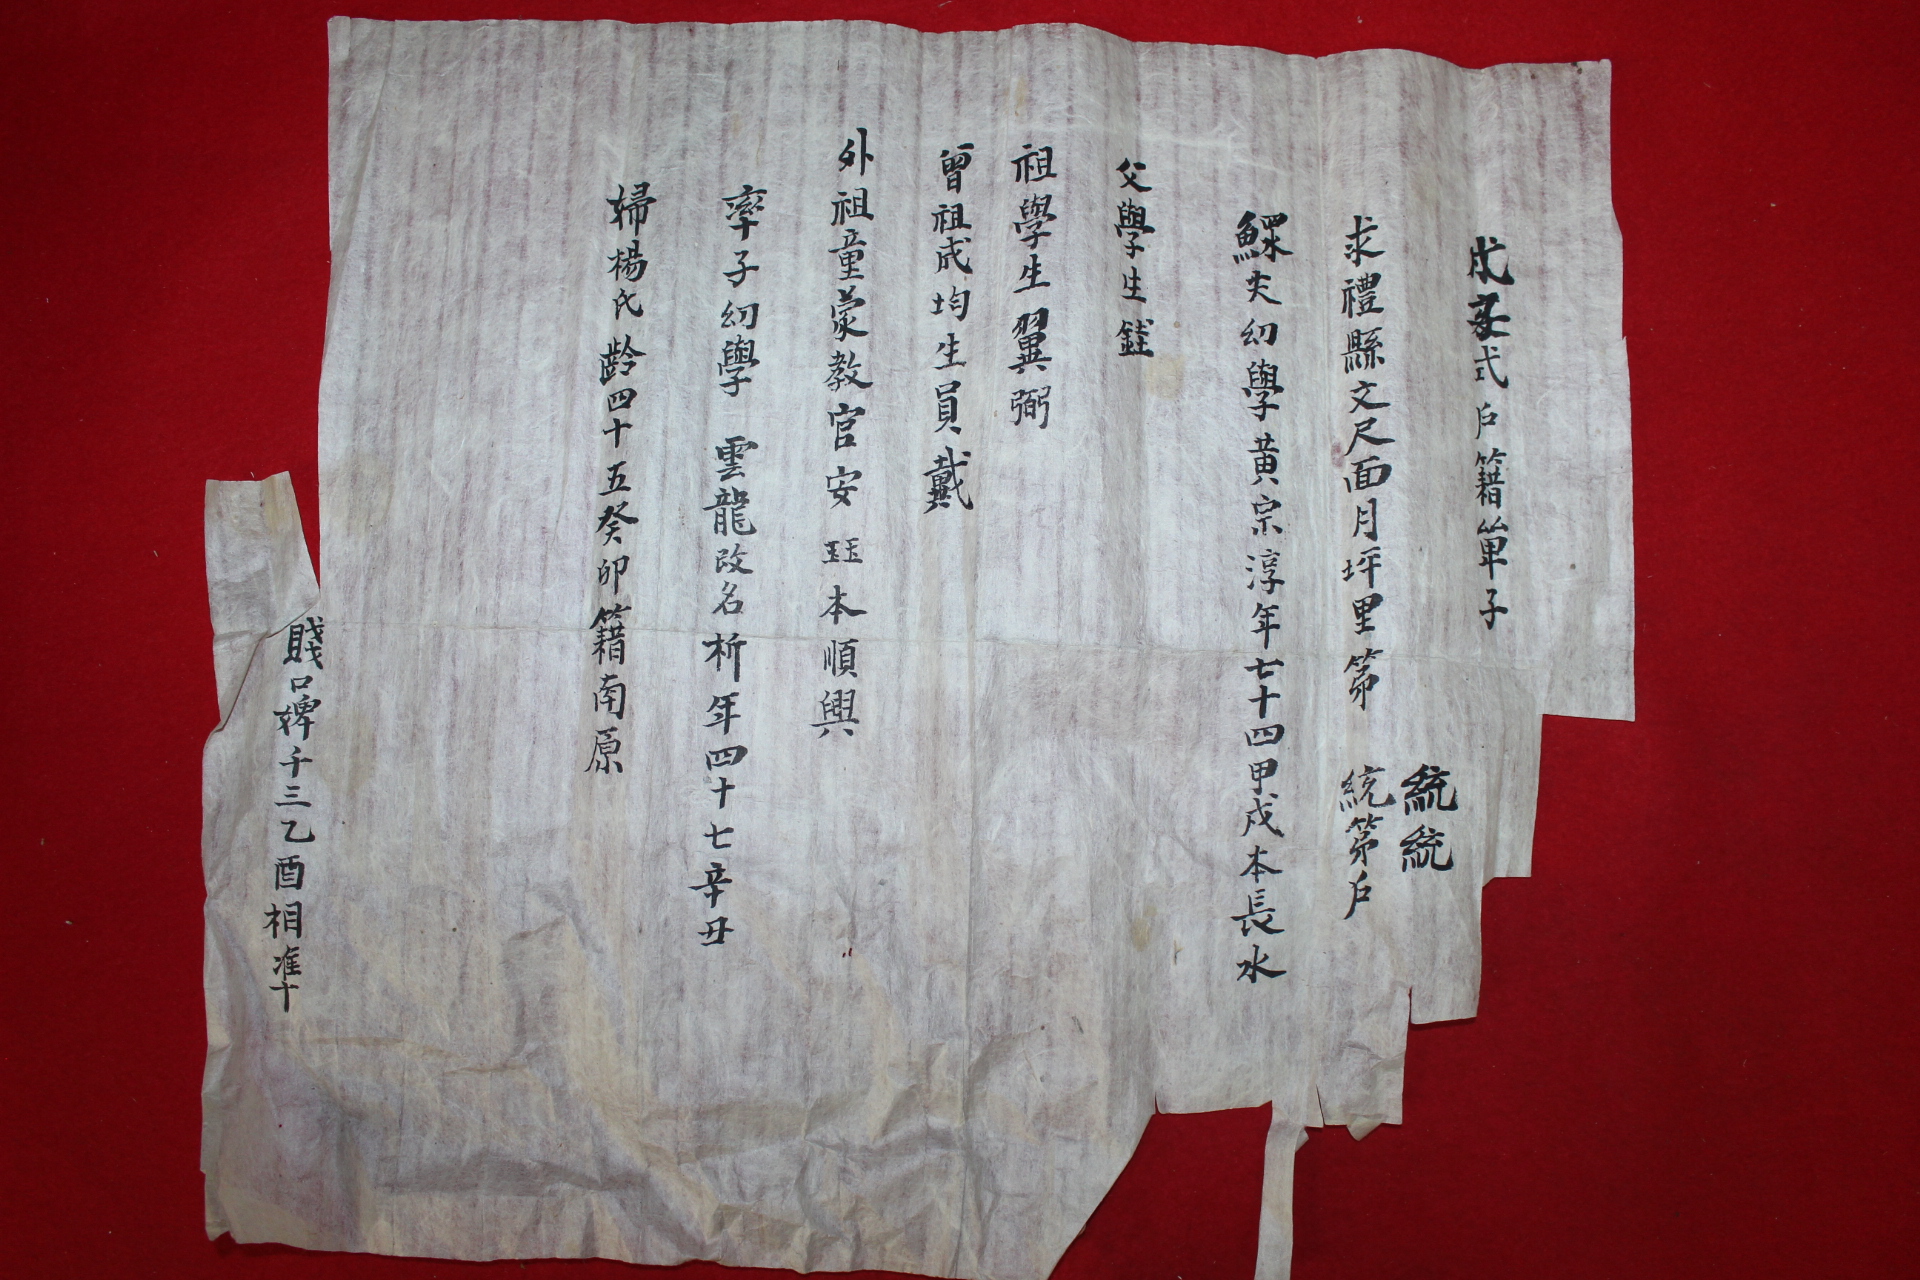 式戶籍單子
求禮縣文尺面月坪里第 統第戶
統統
鰥夫幼學黃宗淳年七十四甲戌本長水
父學生銈
祖學生翼弼
曾祖成均生員戴
外祖童蒙教官安 珏本順興
率子幼學 雲龍改名析年四十七辛丑
婦楊氏齡四十五癸卯籍南原
賤口婢千三乙酉相准十